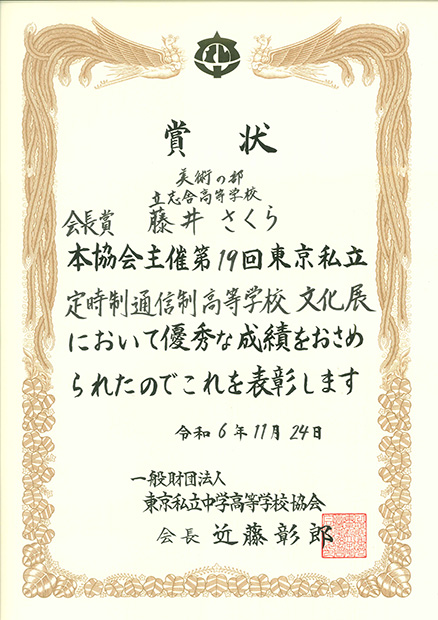 賞状
美術の部
立志舎高等学校
会長賞 藤井さくら
本協会主催第19回東京私立
定時制通信制高等学校 文化展
において優秀な成績をおさめ
られたのでこれを表彰します
令和6年11月24日
一般財団法人
東京私立中学高等学校協会
会長 近藤彰郎